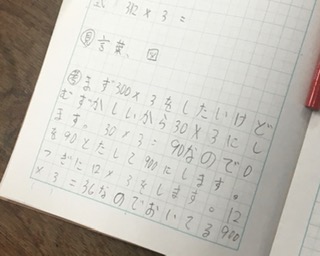 式：312×3＝
見 言葉、図
考 まず300×3をしたいけど
むずかしいから30×3にし
ます。30×3＝90なので0
を90にたして900にします。
つぎに12×3をします。12
×3＝36なのでおいてる900